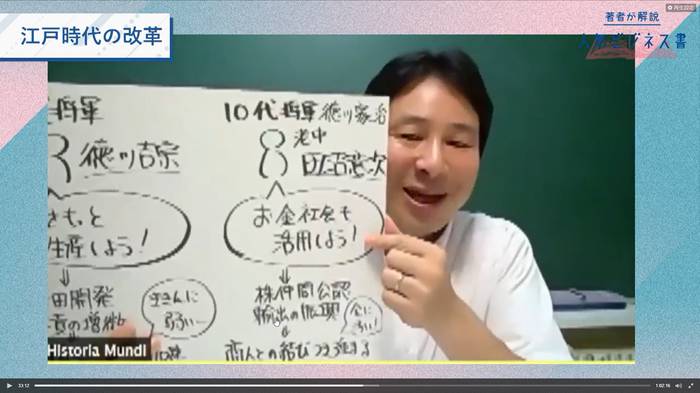 江戸時代の改革
著者が解説
人気ビジネス書
将軍
徳川吉宗
もっと
生産しよう!
田開発
ききんに
弱い…
10代将軍 徳川家治
老中
田沼意次
お金社会を
活用しよう!
株仲間公認
輸出の振興
商人との結びつき
Historia Mundi
33:12
1:02:16